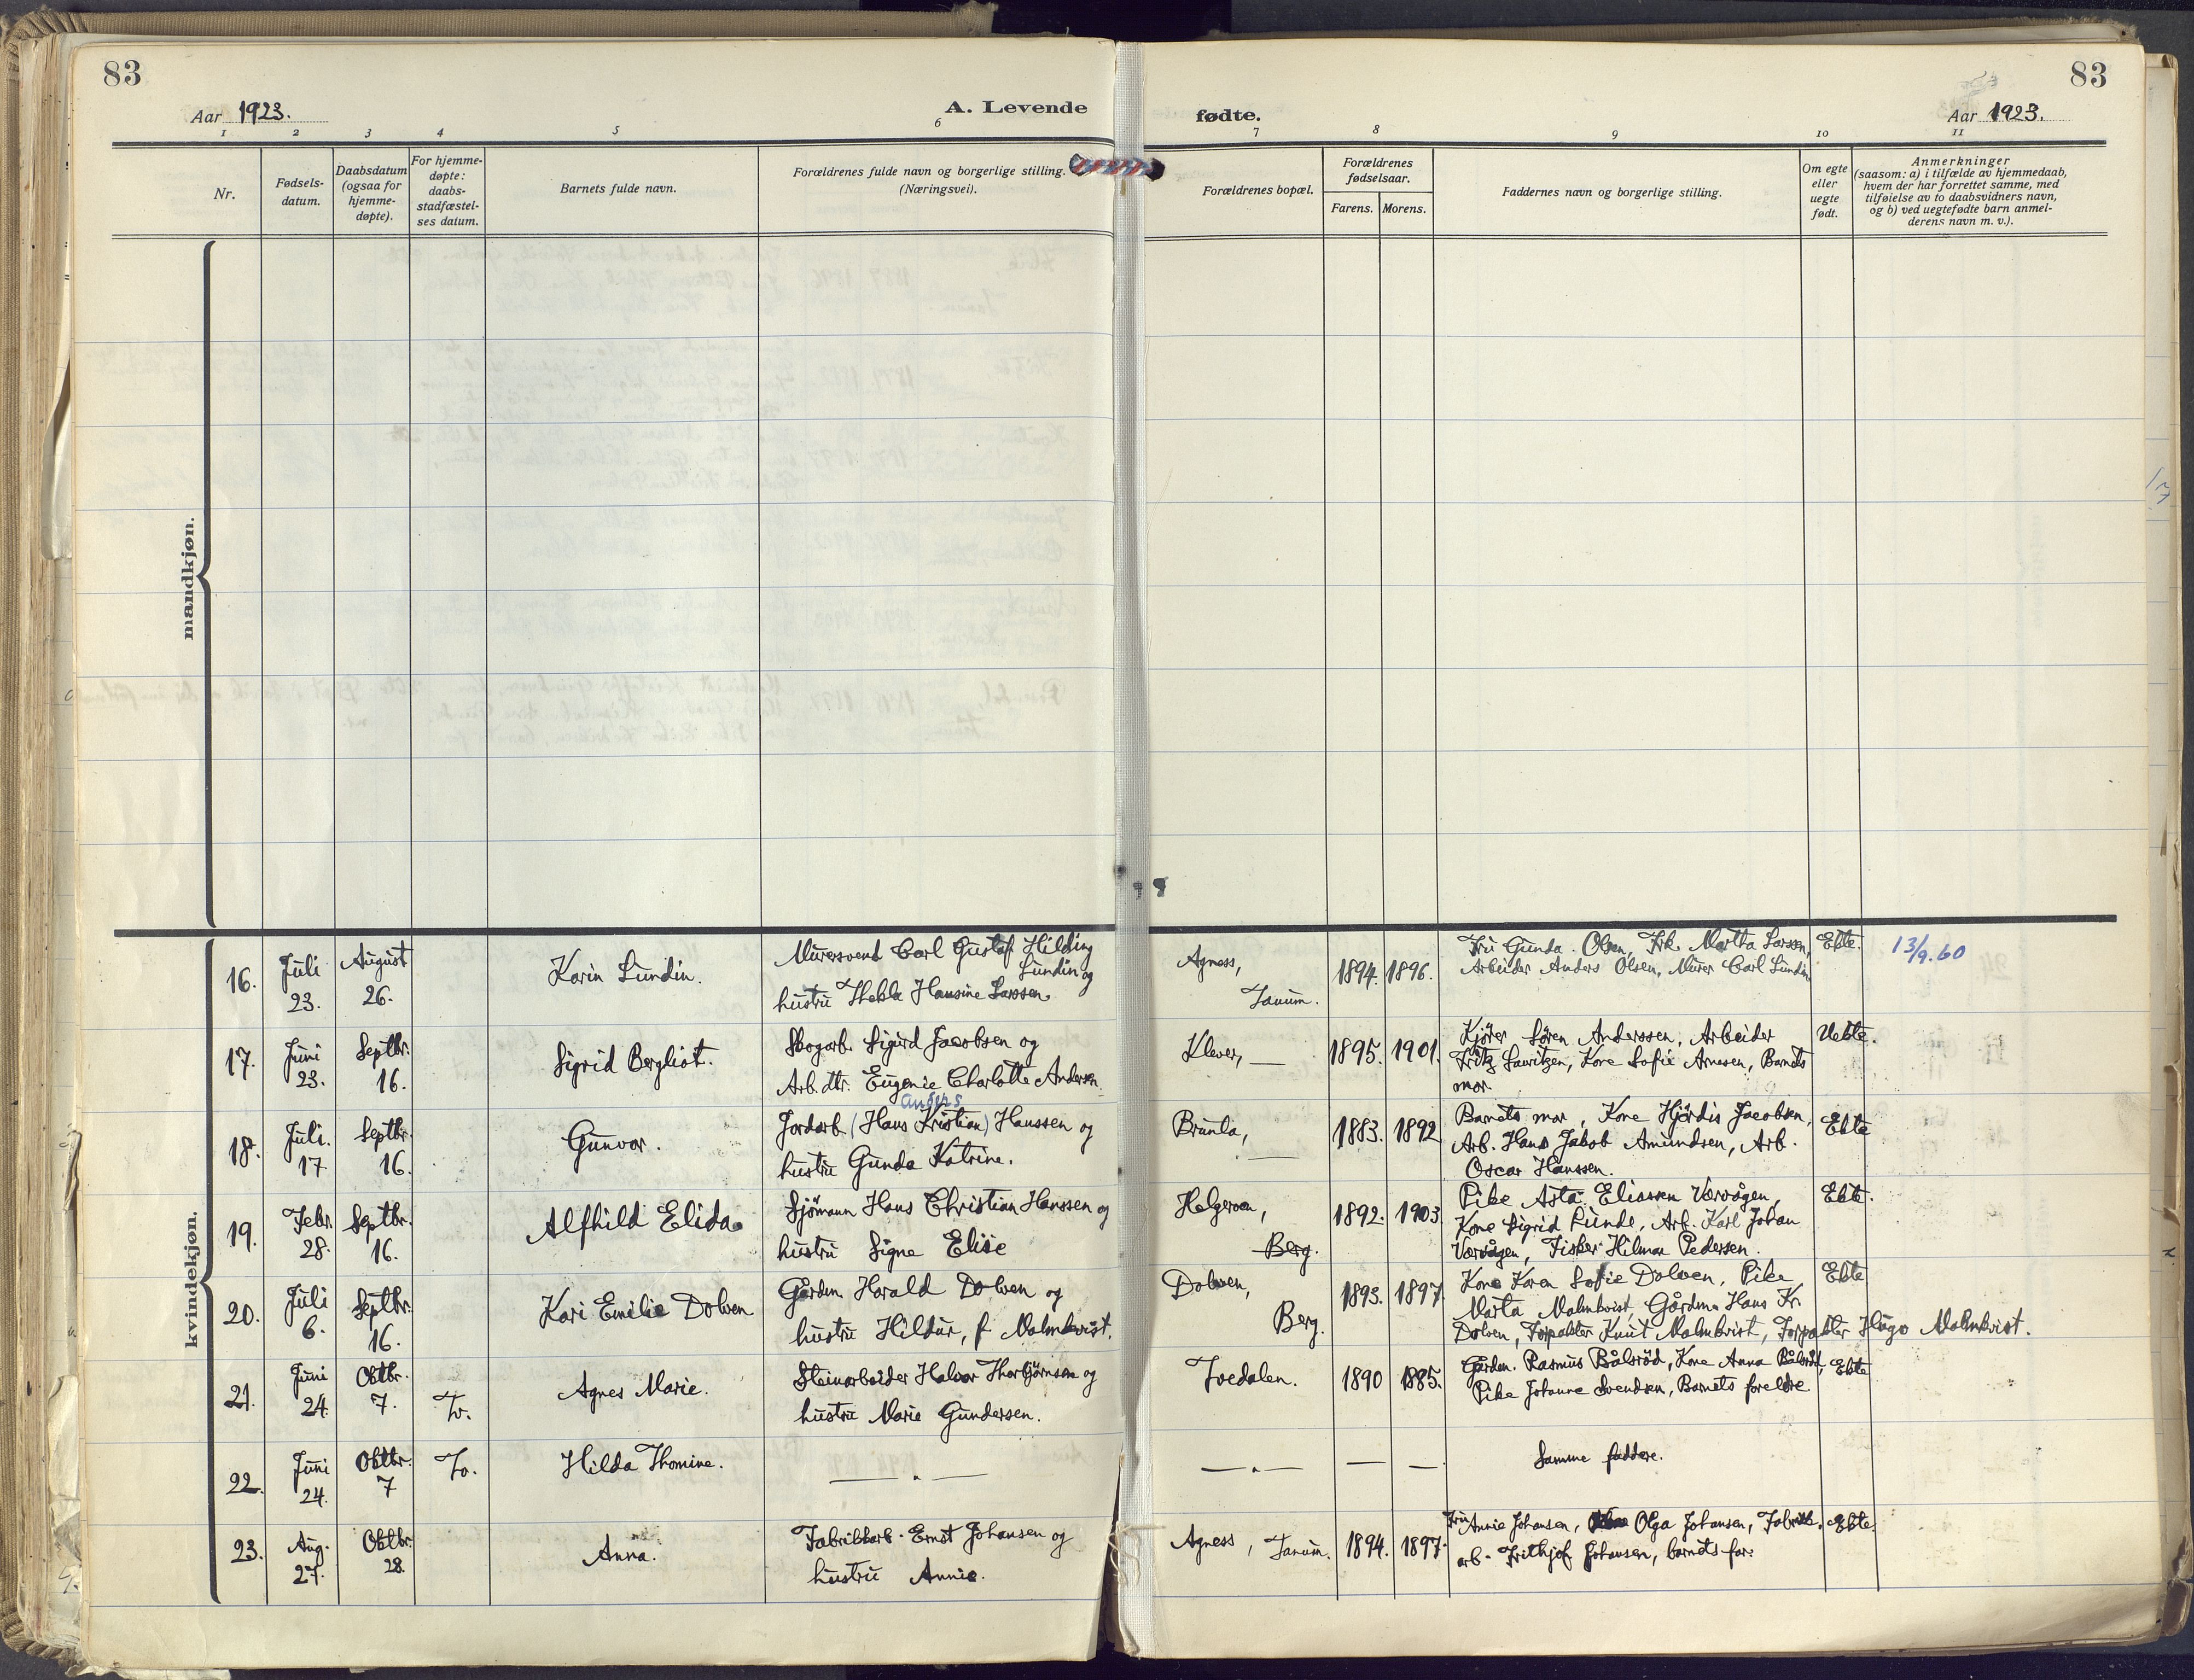 83
Aar 1923.
A. Levende
fødte.
Aar 1923.
83
1 2 3 4 5 6 7 8 9 10 11
Nr.
Fødsels-
datum.
Daabsdatum
(ogsaa for
hjemme-
døpte).
For hjemme-
døpte:
daabs-
stadfæstel-
ses datum.
Barnets fulde navn.
Forældrenes fulde navn og borgerlige stilling.
(Næringsvei).
Forældrenes bopæl.
Forældrenes
fødselsaar.
Farens. Morens.
Faddernes navn og borgerlige stilling.
Om egte
eller
uegte
født.
Anmerkninger
(saasom: a) i tilfælde av hjemmedaab,
hvem der har forrettet samme, med
tilføielse av to daabsvidners navn,
og b) ved uegtefødte barn anmel-
derens navn m. v.).
mandkjøn.
kvindekjøn.
16.
Juli
23.
August
26.
Karin Lundin.
Murersvend Carl Gustaf Hilding
Lundin og
hustru Thekla Hansine Larssen.
Agness,
Tanum.
1894. 1896.
Fru Gunda Olsen, Frk. Martha Larssen,
Arbeider Anders Olsen, Murer Carl Lundin
Ekte.
13/9. 60
17.
Juni
23.
Septbr.
16.
Sigrid Bergliot.
Skogarb. Sigurd Jacobsen og
Arb. dtr. Eugenie Charlotte Andersen.
Klever, —
1895. 1901.
Kjører Søren Anderssen, Arbeider
Fritz Lauritzen, Kone Sofie Arnesen, Barnets
mor.
Uekte.
18.
Juli.
17
Septbr.
16.
Gunvor.
Anders
Jordarb. (Hans Kristian) Hanssen og
hustru Gunda Katrine.
Brunla,
—
1883. 1892
Barnets mor, Kone Hjørdis Jacobsen,
Arb. Hans Jakob Amundsen, Arb.
Oscar Hanssen.
Ekte
19.
Febr.
28.
Septbr.
16.
Alfhild Elida.
Sjømann Hans Christian Hanssen og
hustru Signe Elise
Helgeroen,
Berg.
1892. 1903.
Pike Asta Eliassen Værvågen,
Kone Sigrid Lunde, Arb. Karl Johan
Værvågen, Fisker Hilmar Pedersen.
Ekte.
20.
Juli
6.
Septbr.
16.
Kari Emilie Dolven
Gårdm. Harald Dolven og
hustru Hildur, f. Malmkvist.
Dolven,
Berg.
1893. 1897.
Kone Karen Sofie Dolven, Pike
Marta Malmkvist, Gårdm. Hans Kr.
Dolven, Forpakter Knut Malmkvist, Forpakter Hugo Malmkvist.
Ekte
21.
Juni
24.
Oktbr.
7.
Tv.
Agnes Marie.
Steinarbeider Halvor Thorbjørnsen og
hustru Marie Gundersen.
Tvedalen.
1890 1885.
Gårdm. Rasmus Bålsrød, Kone Anna Bålsrød,
Pike Johanne Svendsen, Barnets foreldre
Ekte
22.
Juni
24.
Oktbr.
7
Tv.
Hilda Thomine.
— " —
— " —
— —
Samme faddere.
23.
Aug.
27.
Oktbr.
28.
Anna.
Fabrikkarb. Ernst Johansen og
hustru Annie.
Agness, Tanum.
1894. 1897.
Fru Annie Johansen, Olga Johansen, Fabrikk-
arb. Frithjof Johansen, barnets far.
Ekte.